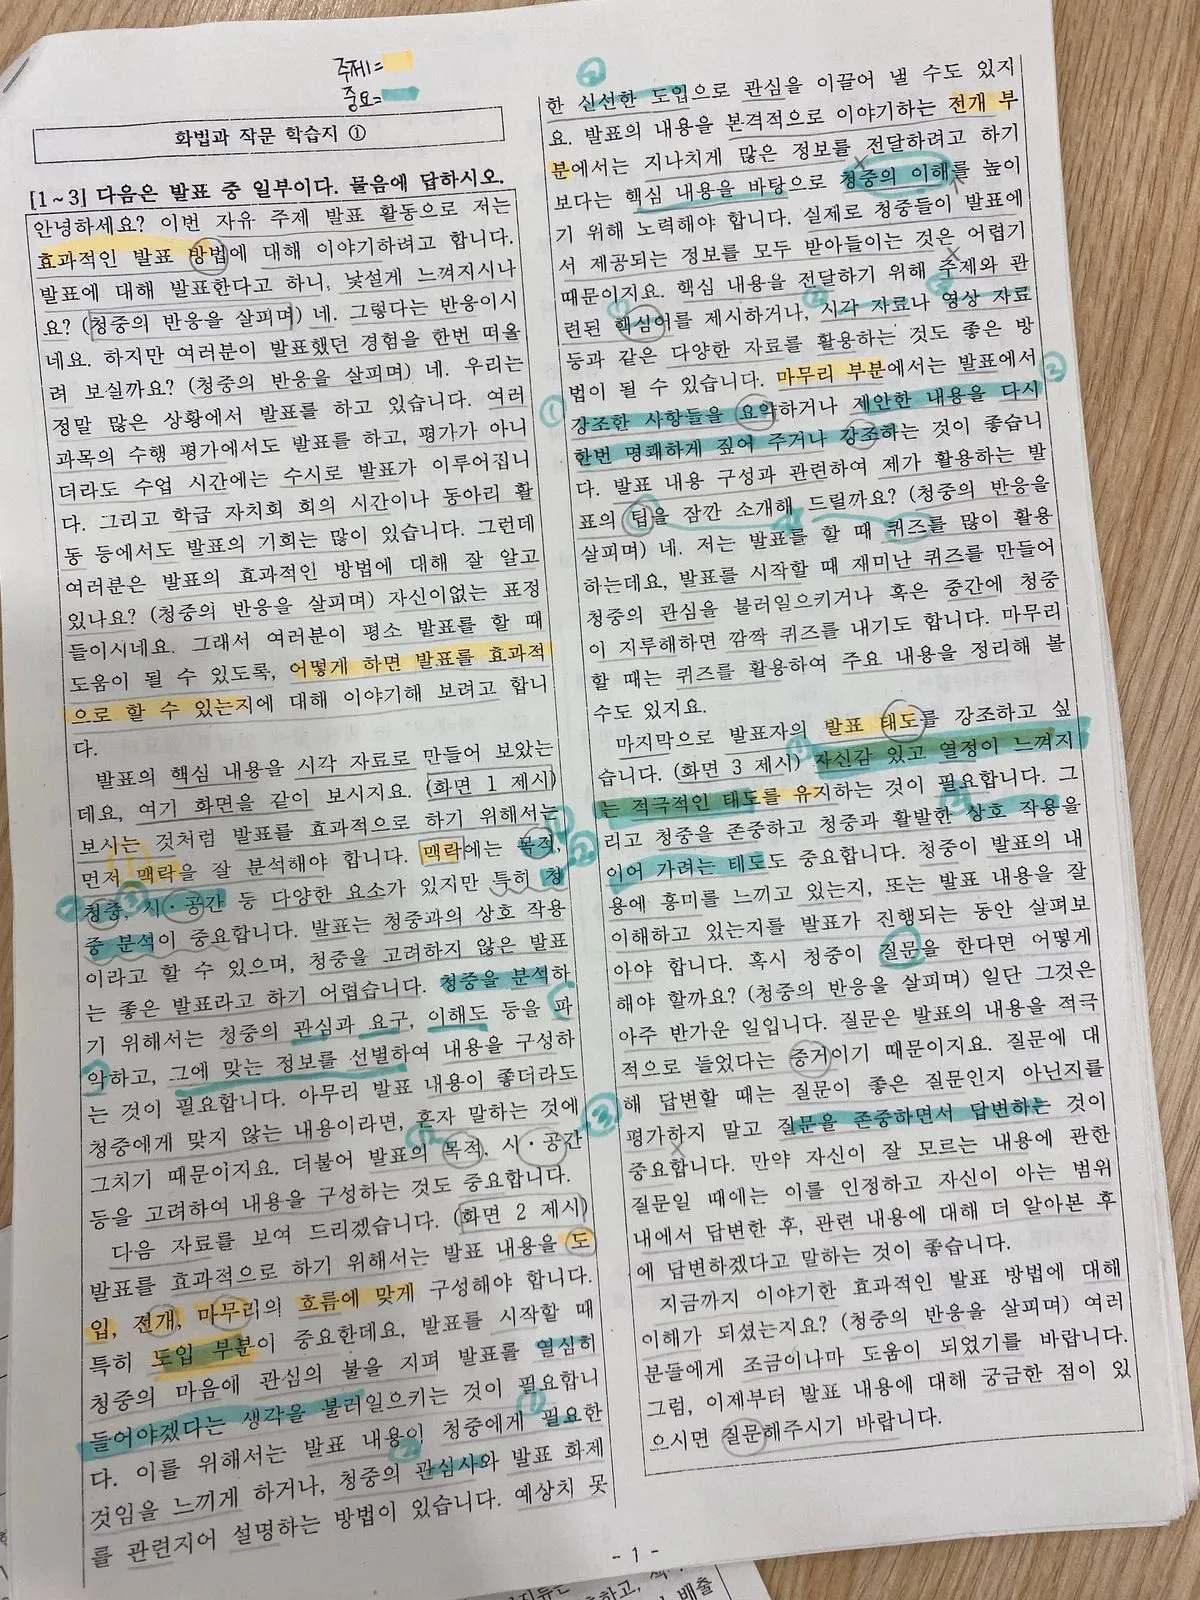 주제=
중요=
화법과 작문 학습지 ①
[1~3] 다음은 발표 중 일부이다. 물음에 답하시오.
안녕하세요? 이번 자유 주제 발표 활동으로 저는
효과적인 발표 방법에 대해 이야기하려고 합니다.
발표에 대해 발표한다고 하니, 낯설게 느껴지시나
요? (청중의 반응을 살피며) 네. 그렇다는 반응이시
네요. 하지만 여러분이 발표했던 경험을 한번 떠올
려 보실까요? (청중의 반응을 살피며) 네. 우리는
정말 많은 상황에서 발표를 하고 있습니다. 여러
과목의 수행 평가에서도 발표를 하고, 평가가 아니
더라도 수업 시간에는 수시로 발표가 이루어집니
다. 그리고 학급 자치회 회의 시간이나 동아리 활
동 등에서도 발표의 기회는 많이 있습니다. 그런데
여러분은 발표의 효과적인 방법에 대해 잘 알고
있나요? (청중의 반응을 살피며) 자신이없는 표정
들이시네요. 그래서 여러분이 평소 발표를 할 때
도움이 될 수 있도록, 어떻게 하면 발표를 효과적
으로 할 수 있는지에 대해 이야기해 보려고 합니
다.
발표의 핵심 내용을 시각 자료로 만들어 보았는
데요, 여기 화면을 같이 보시지요. (화면 1 제시)
보시는 것처럼 발표를 효과적으로 하기 위해서는
먼저 맥락을 잘 분석해야 합니다. 맥락에는 목적,
청중, 시·공간 등 다양한 요소가 있지만 특히 청
중 분석이 중요합니다. 발표는 청중과의 상호 작용
이라고 할 수 있으며, 청중을 고려하지 않은 발표
는 좋은 발표라고 하기 어렵습니다. 청중을 분석하
기 위해서는 청중의 관심과 요구, 이해도 등을 파
악하고, 그에 맞는 정보를 선별하여 내용을 구성하
는 것이 필요합니다. 아무리 발표 내용이 좋더라도
청중에게 맞지 않는 내용이라면, 혼자 말하는 것에
그치기 때문이지요. 더불어 발표의 목적, 시·공간
등을 고려하여 내용을 구성하는 것도 중요합니다.
다음 자료를 보여 드리겠습니다. (화면 2 제시)
발표를 효과적으로 하기 위해서는 발표 내용을 도
입, 전개, 마무리의 흐름에 맞게 구성해야 합니다.
특히 도입 부분이 중요한데요, 발표를 시작할 때
청중의 마음에 관심의 불을 지펴 발표를 열심히
들어야겠다는 생각을 불러일으키는 것이 필요합니
다. 이를 위해서는 발표 내용이 청중에게 필요한
것임을 느끼게 하거나, 청중의 관심사와 발표 화제
를 관련지어 설명하는 방법이 있습니다. 예상치 못
한 신선한 도입으로 관심을 이끌어 낼 수도 있지
요. 발표의 내용을 본격적으로 이야기하는 전개 부
분에서는 지나치게 많은 정보를 전달하려고 하기
보다는 핵심 내용을 바탕으로 청중의 이해를 높이
기 위해 노력해야 합니다. 실제로 청중들이 발표에
서 제공되는 정보를 모두 받아들이는 것은 어렵기
때문이지요. 핵심 내용을 전달하기 위해 주제와 관
련된 핵심어를 제시하거나, 시각 자료나 영상 자료
등과 같은 다양한 자료를 활용하는 것도 좋은 방
법이 될 수 있습니다. 마무리 부분에서는 발표에서
강조한 사항들을 요약하거나 제안한 내용을 다시
한번 명쾌하게 짚어 주거나 강조하는 것이 좋습니
다. 발표 내용 구성과 관련하여 제가 활용하는 발
표의 팁을 잠깐 소개해 드릴까요? (청중의 반응을
살피며) 네. 저는 발표를 할 때 퀴즈를 많이 활용
하는데요, 발표를 시작할 때 재미난 퀴즈를 만들어
청중의 관심을 불러일으키거나 혹은 중간에 청중
이 지루해하면 깜짝 퀴즈를 내기도 합니다. 마무리
할 때는 퀴즈를 활용하여 주요 내용을 정리해 볼
수도 있지요.
마지막으로 발표자의 발표 태도를 강조하고 싶
습니다. (화면 3 제시) 자신감 있고 열정이 느껴지
는 적극적인 태도를 유지하는 것이 필요합니다. 그
리고 청중을 존중하고 청중과 활발한 상호 작용을
이어 가려는 태도도 중요합니다. 청중이 발표의 내
용에 흥미를 느끼고 있는지, 또는 발표 내용을 잘
이해하고 있는지를 발표가 진행되는 동안 살펴보
아야 합니다. 혹시 청중이 질문을 한다면 어떻게
해야 할까요? (청중의 반응을 살피며) 일단 그것은
아주 반가운 일입니다. 질문은 발표의 내용을 적극
적으로 들었다는 증거이기 때문이지요. 질문에 대
해 답변할 때는 질문이 좋은 질문인지 아닌지를
평가하지 말고 질문을 존중하면서 답변하는 것이
중요합니다. 만약 자신이 잘 모르는 내용에 관한
질문일 때에는 이를 인정하고 자신이 아는 범위
내에서 답변한 후, 관련 내용에 대해 더 알아본 후
에 답변하겠다고 말하는 것이 좋습니다.
지금까지 이야기한 효과적인 발표 방법에 대해
이해가 되셨는지요? (청중의 반응을 살피며) 여러
분들에게 조금이나마 도움이 되었기를 바랍니다.
그럼, 이제부터 발표 내용에 대해 궁금한 점이 있
으시면 질문해주시기 바랍니다.
- 1 -